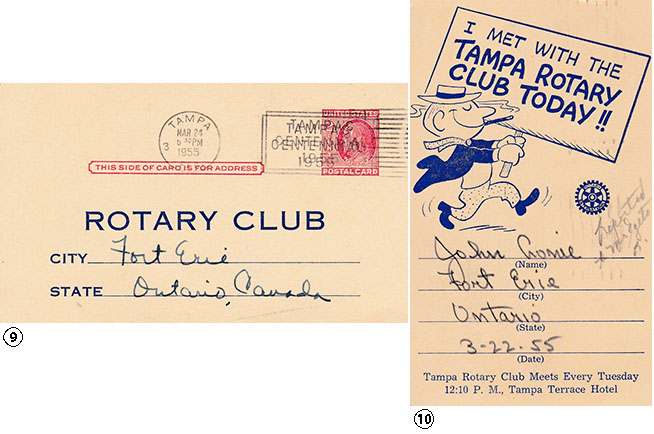 TAMPA
3
MAR 24
PM
1955
UNITED STATES
TAMPA'S
CENTENNIAL
1955
THIS SIDE OF CARD IS FOR ADDRESS
POSTAL CARD
ROTARY CLUB
CITY Fort Erie
STATE Ontario, Canada
9
I MET WITH THE
TAMPA ROTARY
CLUB TODAY!!
reported
John
(Name)
Fort Erie
(City)
Ontario
(State)
3-22-55
(Date)
Tampa Rotary Club Meets Every Tuesday
12:10 P. M., Tampa Terrace Hotel
10